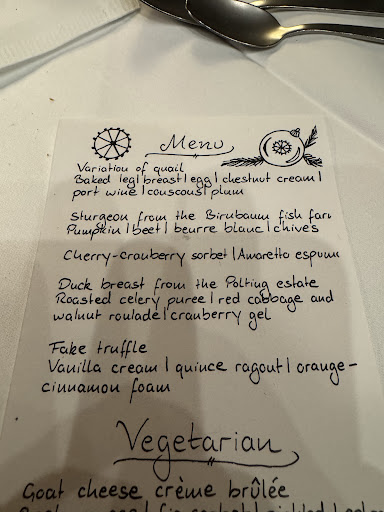 Menu
Variation of quail
Baked leg | breast | egg | chestnut cream |
port wine | couscous | plum
Sturgeon from the Birnbaum fish farm
Pumpkin | beet | beurre blanc | chives
Cherry-cranberry sorbet | Amaretto espuma
Duck breast from the Polting estate
Roasted celery puree | red cabbage and
walnut roulade | cranberry gel
Fake truffle
Vanilla cream | quince ragout | orange-
cinnamon foam
Vegetarian
Goat cheese crème brûlée